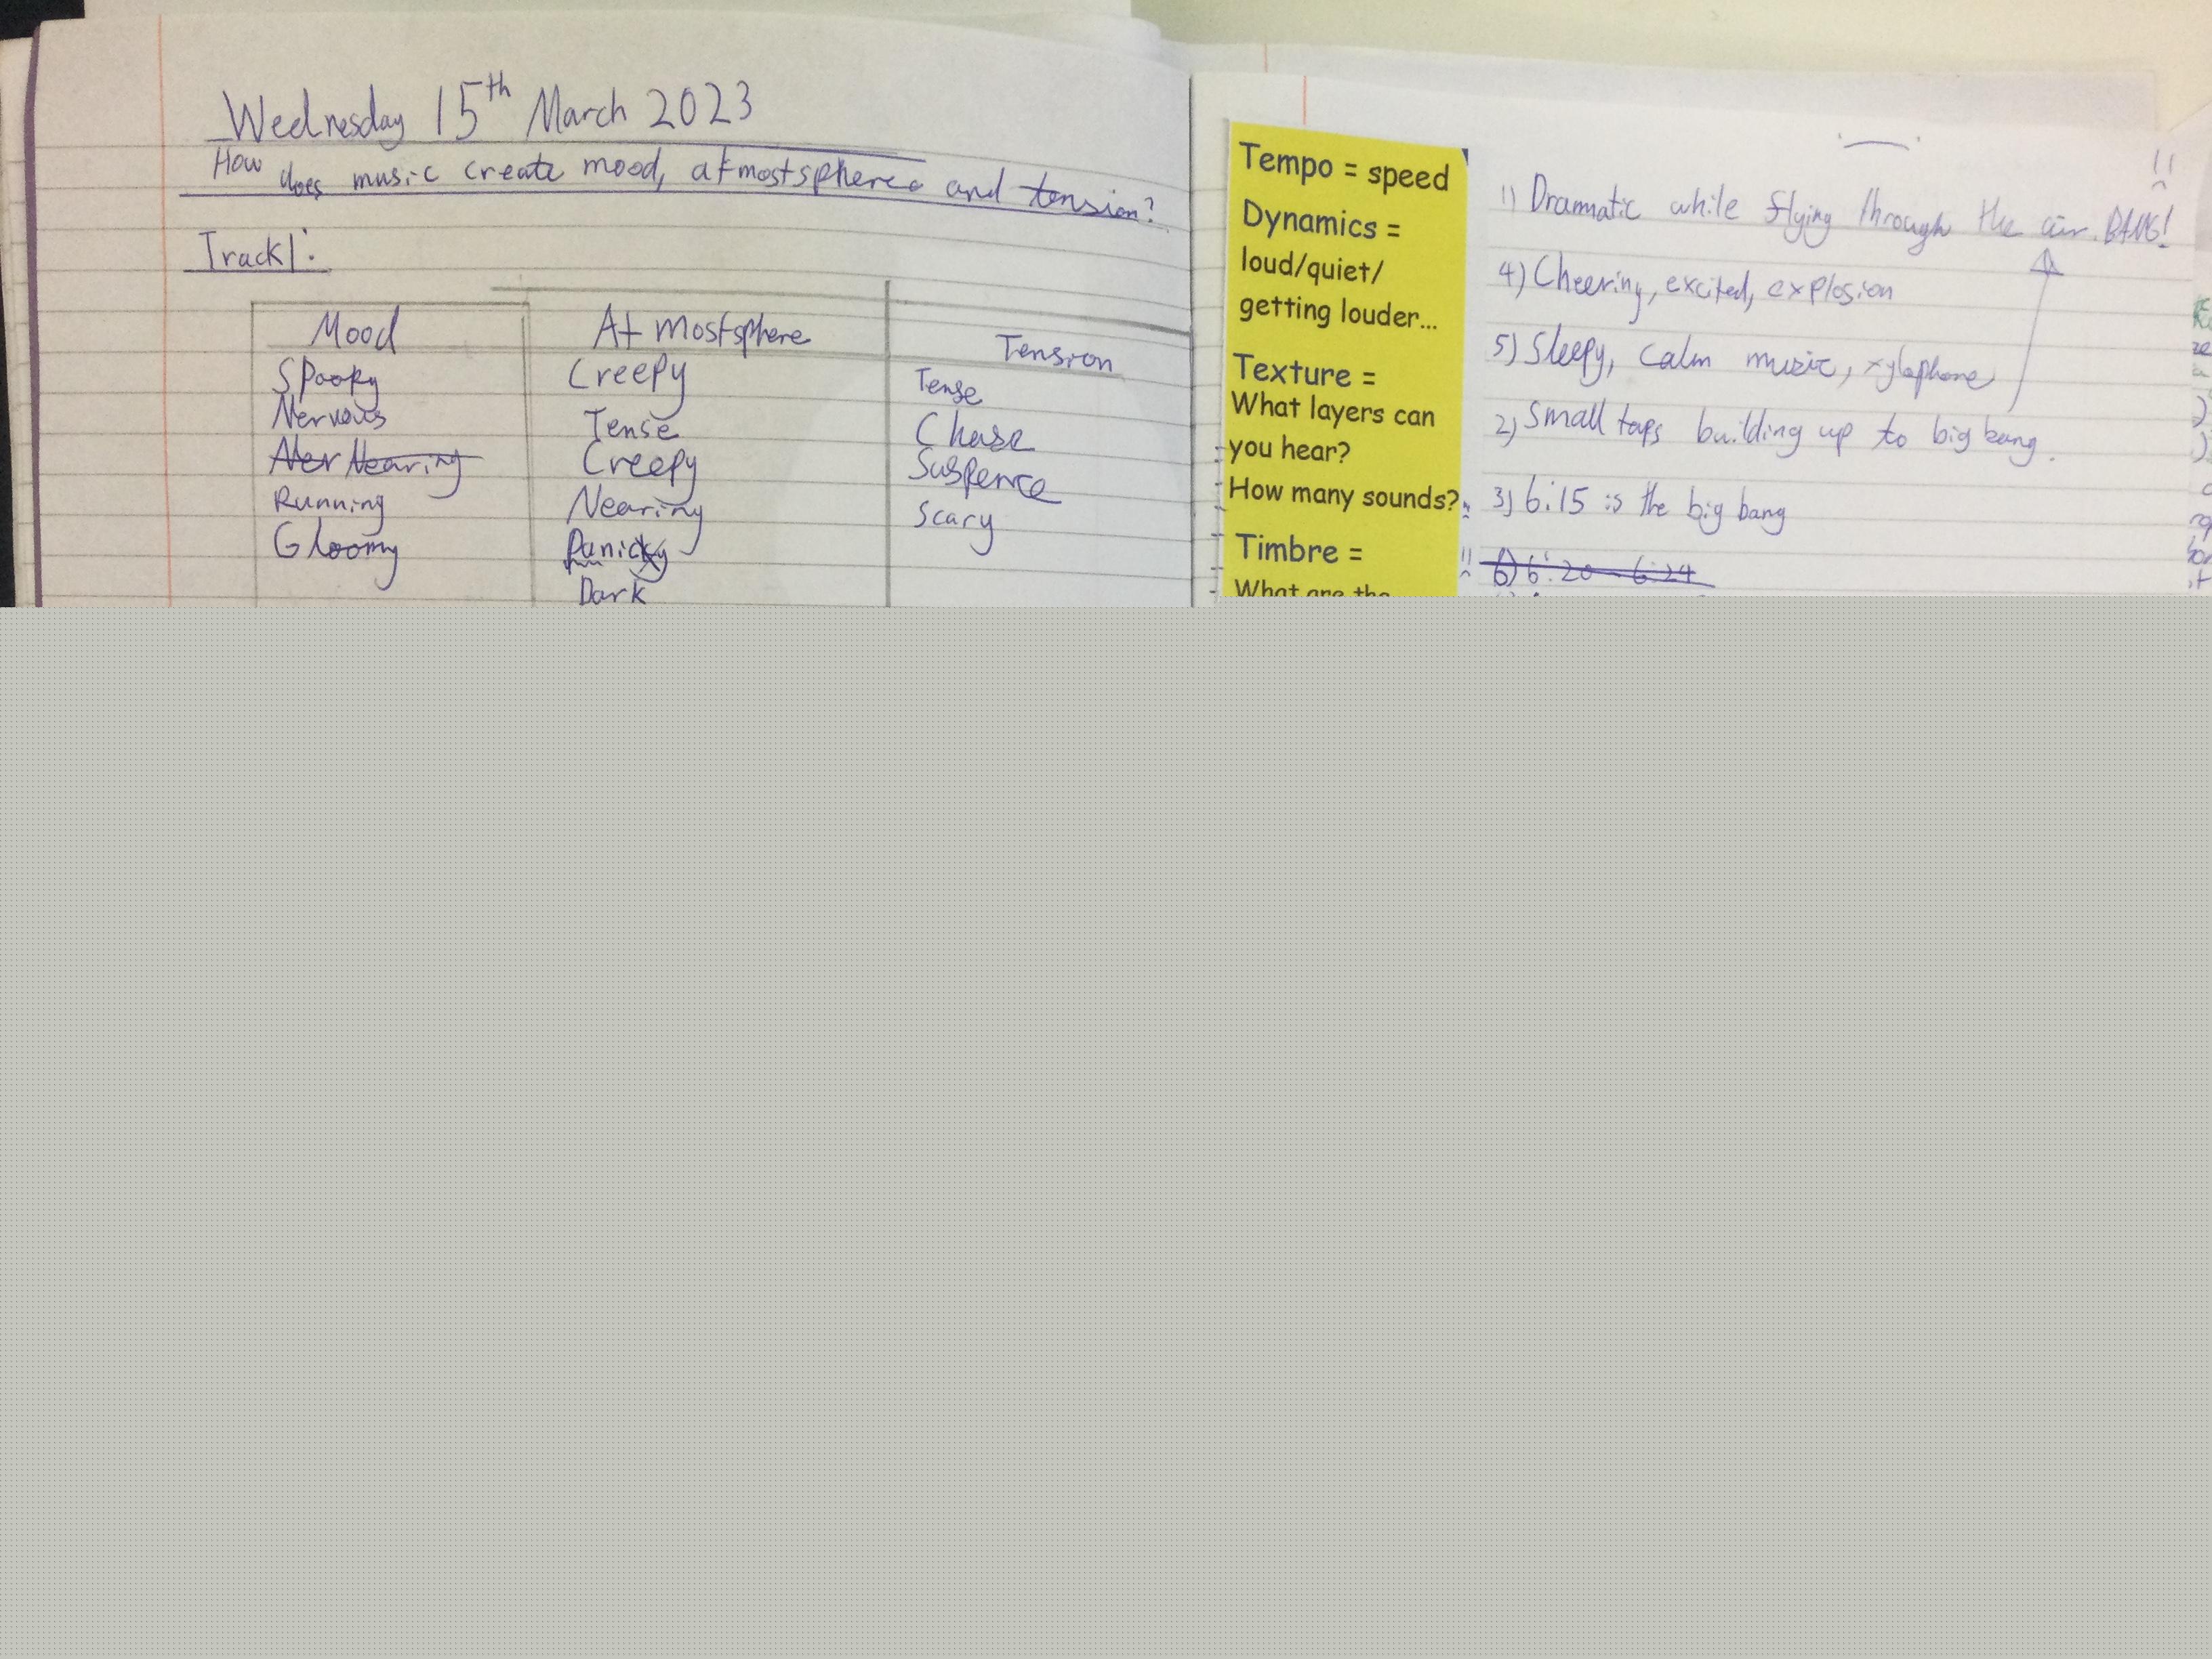 Wednesday 15th March 2023
How does music create mood, atmostsphere and tension?
Track 1:
Mood
Spooky
Nervous
Ner Nearing
Running
Gloomy
At mostsphere
Creepy
Tense
Creepy
Nearing
Panicky
Dark
Tension
Tense
Chase
Suspence
Scary
Tempo = speed
Dynamics =
loud/quiet/
getting louder...
Texture =
What layers can
you hear?
How many sounds?
Timbre =
What are the
1) Dramatic while flying through the air. BANG!
4) Cheering, excited, explosion
5) Sleepy, calm music, xylophone
2) Small taps building up to big bang.
3) 6:15 is the big bang
6) 6:20 - 6:24